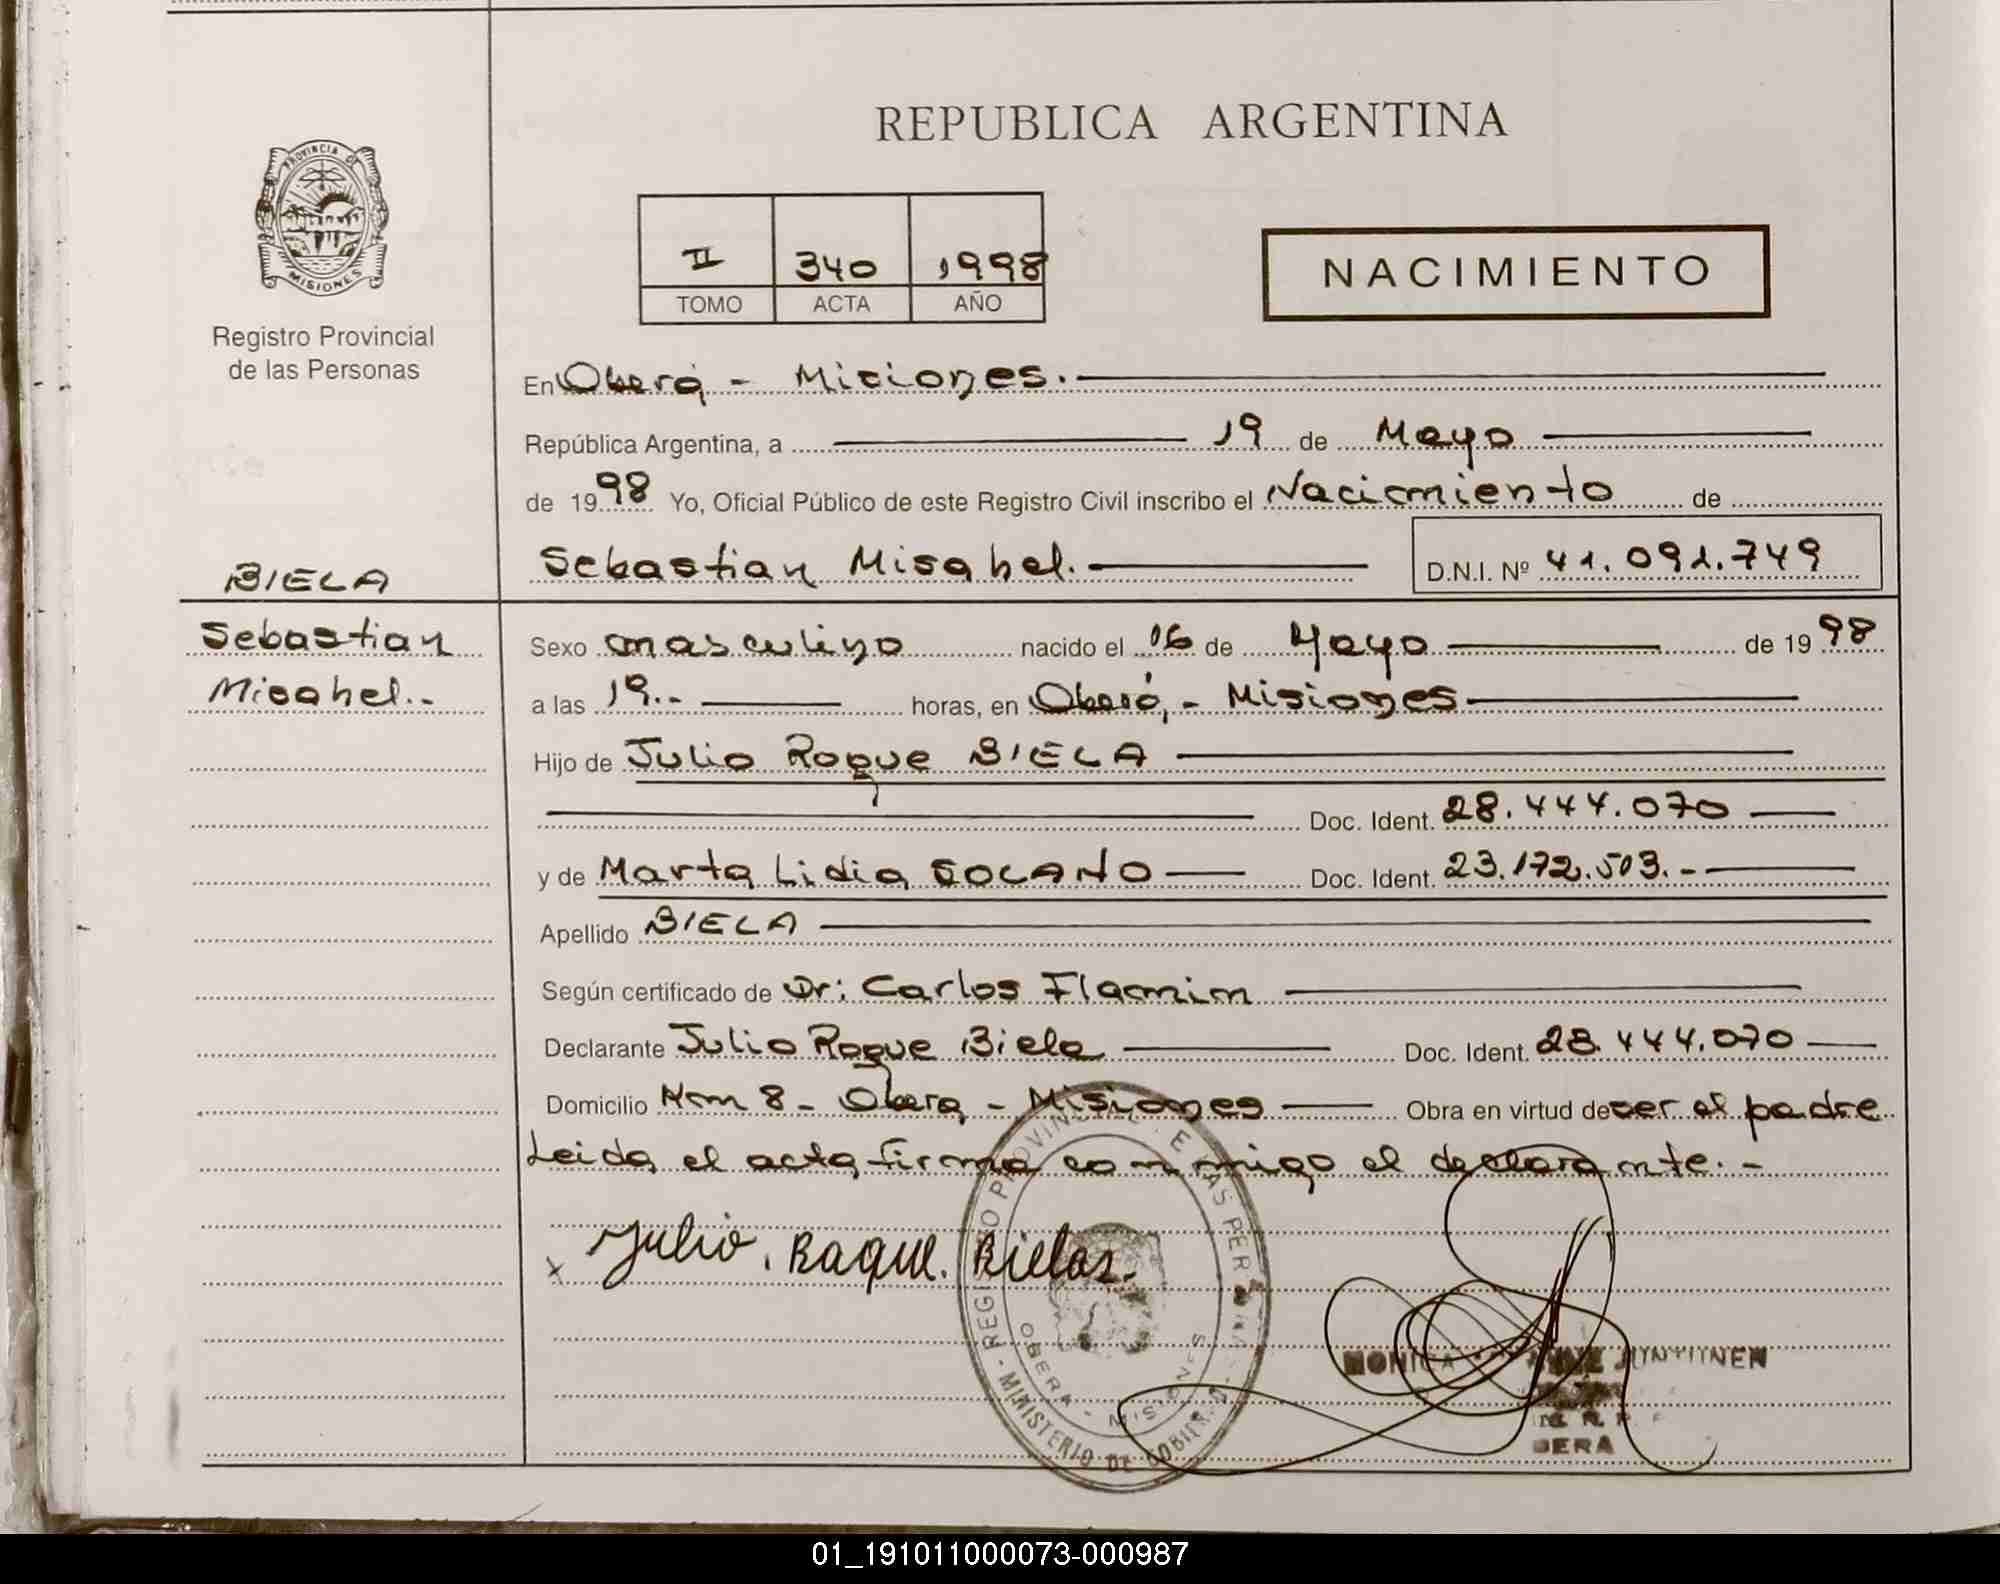 REPUBLICA ARGENTINA
PROVINCIA DE
MISIONES
Registro Provincial
de las Personas
II 340 1998
TOMO ACTA AÑO
NACIMIENTO
En Oberá - Misiones.
República Argentina, a 19 de Mayo
de 1998 Yo, Oficial Público de este Registro Civil inscribo el Nacimiento de
Sebastian Misahel. D.N.I. Nº 41.091.749
BIELA
Sebastian
Misahel.-
Sexo masculino nacido el 16 de Mayo de 1998
a las 19.- horas, en Oberá, - Misiones
Hijo de Julio Roque BIELA
Doc. Ident. 28.444.070
y de Marta Lidia SOCANO Doc. Ident. 23.172.503.-
Apellido BIELA
Según certificado de Dr: Carlos Flamim
Declarante Julio Roque Biela Doc. Ident. 28.444.070
Domicilio Km 8 - Obera - Misiones Obra en virtud de ser el padre
Leida el acta firma conmigo el declarante. -
x Julio. Raque. Bielas.
REGISTRO PROVINCIAL DE LAS PERSONAS
OBERA - MISIONES
MINISTERIO DE GOBIER
MONICA JUNTUNEN
OBERA
01_191011000073-000987